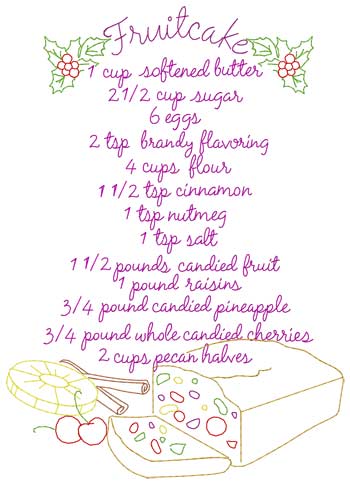 Fruitcake
1 cup softened butter
2 1/2 cup sugar
6 eggs
2 tsp brandy flavoring
4 cups flour
1 1/2 tsp cinnamon
1 tsp nutmeg
1 tsp salt
1 1/2 pounds candied fruit
1 pound raisins
3/4 pound candied pineapple
3/4 pound whole candied cherries
2 cups pecan halves